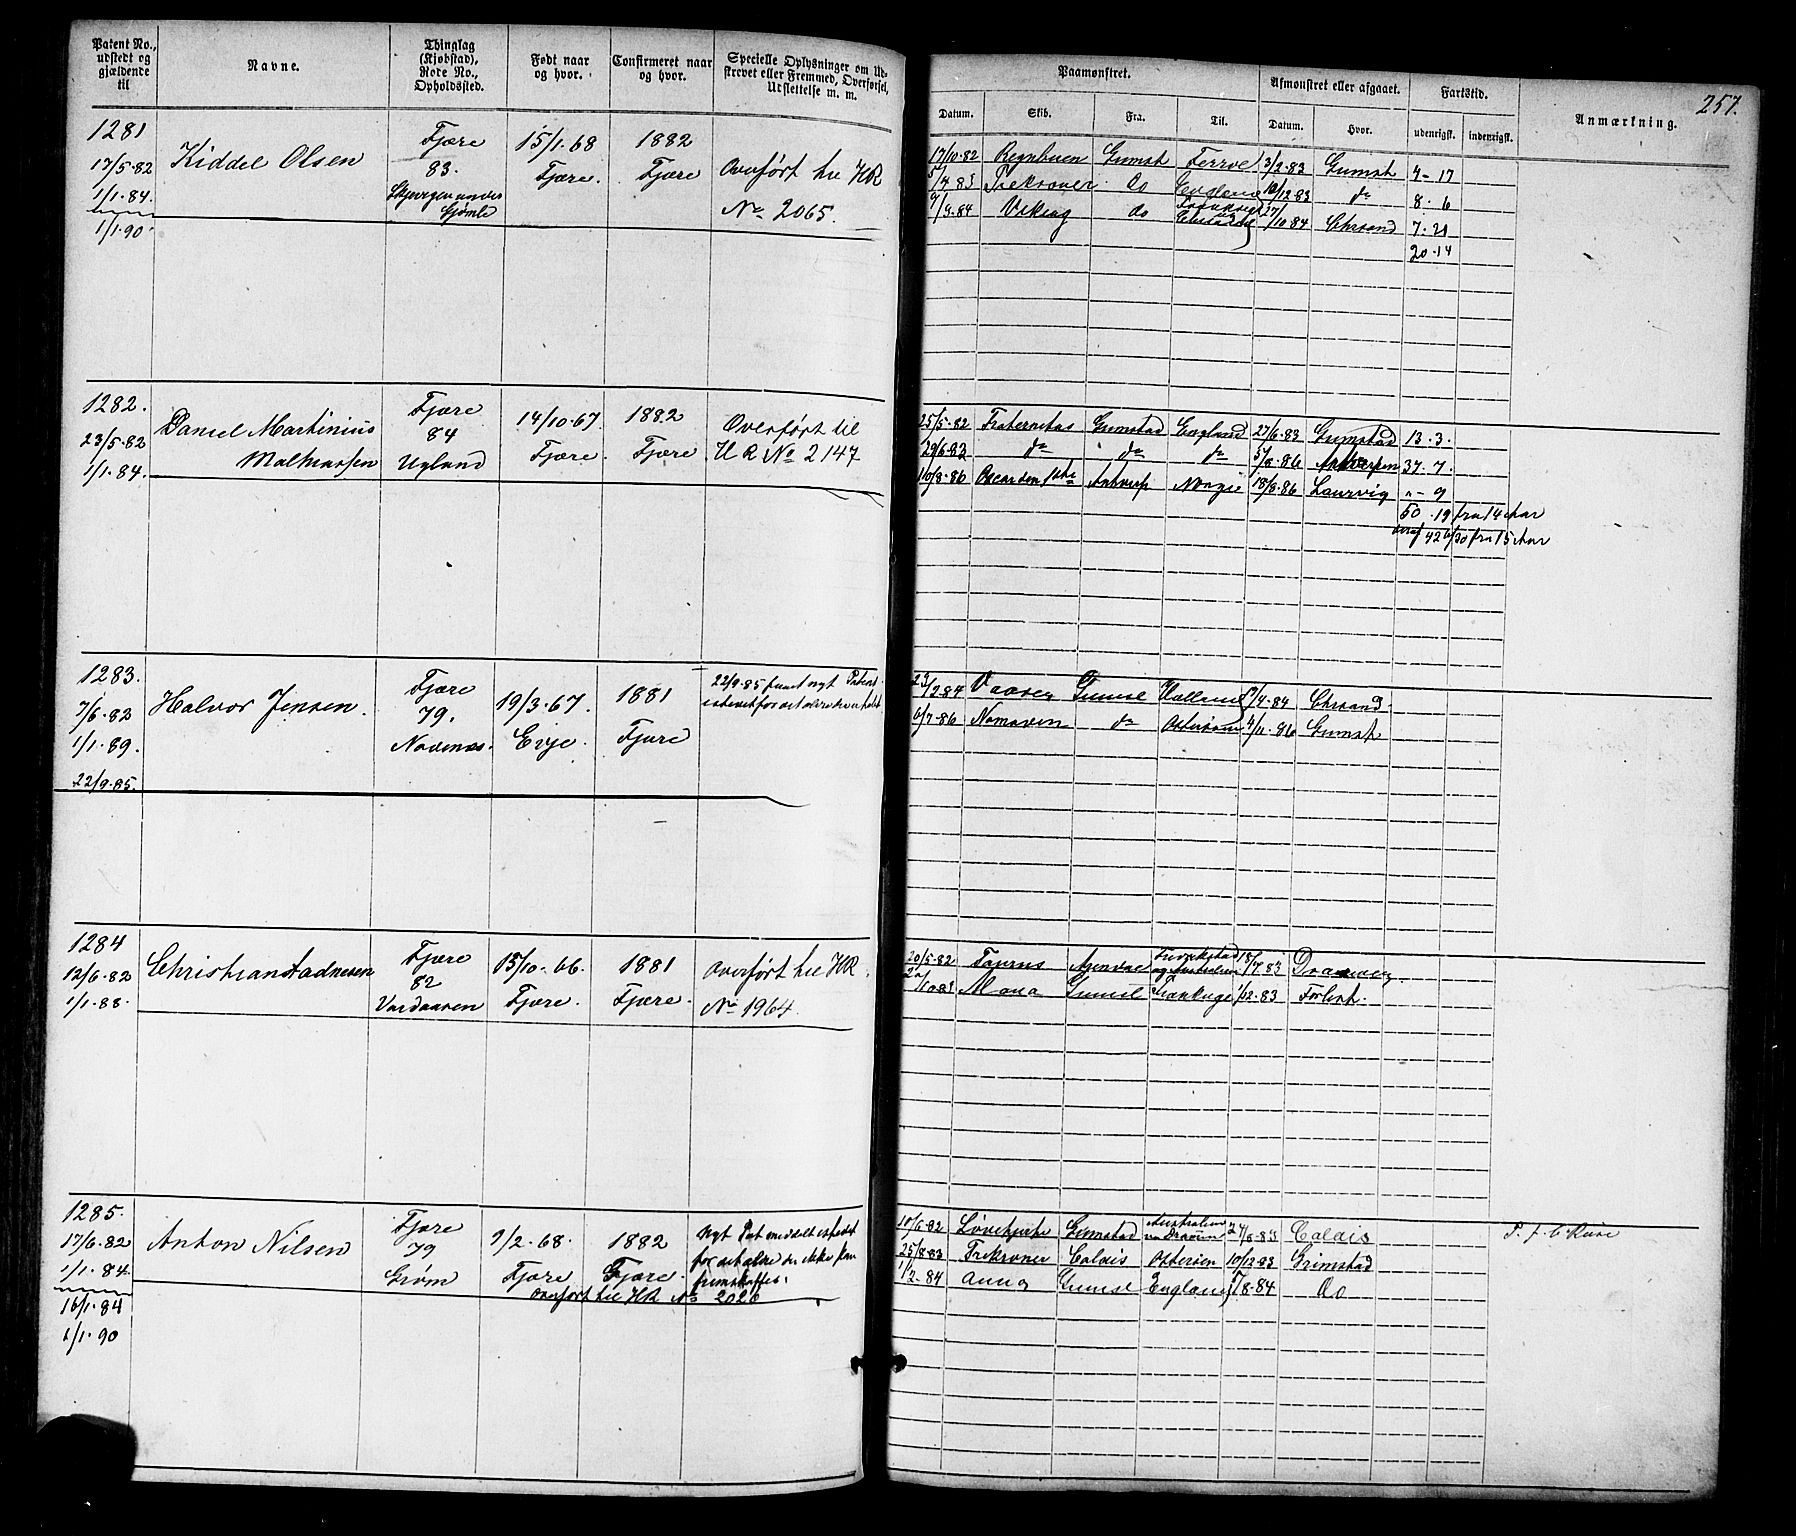 Patent No., udstedt og gjældende til
Navne.
Thinglag (Kjøbstad), Rode No., Opholdssted.
Født naar og hvor.
Confirmeret naar og hvor.
Specielle Oplysninger om Udskrevet eller Fremmed, Overførsel, Udslettelse m. m.
Paamønstret.
Datum.
Skib.
Fra.
Til.
Afmønstret eller afgaaet.
Datum.
Hvor.
Fartstid.
udenrigst.
indenrigst.
Anmærkning.
257.
1281
17/5-82
1/1-84
1/1-90
Kiddel Olsen
Fjære
83.
15/1-68
Fjære.
1882
Fjære
Overført til HR
No 2065.
17/10-82 Regnbuen Grmst 3/2-83 Grmst 4-17
Do 10/12-83 do 8-6
9/4-84 Viking Do 27/10-84 Chrsand 7-21
20-14
1282.
23/5-82
1/1-84.
Daniel Martinius
Mathiassen
Fjære
84
Ugland
14/10-67
Fjære.
1882
Fjære
Overført til
HR No 2147
25/5-82 Fraternitas Grimstad England 27/6-83 Grimstad 13.3.
29/6-83 do do do 5/8-86 Antwerpen 37.7.
10/8-86 Oscar den 1ste Antwerp Norge 18/8-86 Laurvig "-9
50.19 fra 14 Aar
deraf 42 6/30 fra 15 Aar
1283.
7/6-82
1/1-89.
22/9-85.
Halvor Jensen.
Fjære
79.
19/3-67.
Evje.
1881
Fjære
22/9-85 funet nyt Patent
23/2-84 Grmst 4-84 Chrsand.
6/7-86 do Østersøen 4/11-86 Grmst
1284
12/6-82
1/1-88.
Christian
Fjære
82
15/10-66
Fjære.
1881
Fjære.
Overført til HR.
No 1964.
20/5-82 Arendal Fredrikstad og Australien 18/7-83
Grmst Frankrige 1/12-83 Forlist.
1285.
17/6-82
1/1-84.
16/1-84
1/1-90
Anton Nilsen
Fjære
79
Grøm
9/2-68.
Fjære
1882
Fjære.
Nyt Pat meddelt istedet
for det ældre der ikke kan
fremskaffes.
Overført til HR No 2020
10/6-82 Grimstad Australien 8-83 Calais
25/8-83 Trekroner Calais Østersøen 10/12-83 Grimstad
1/2-84 Anna Grmst England 8-84 Do